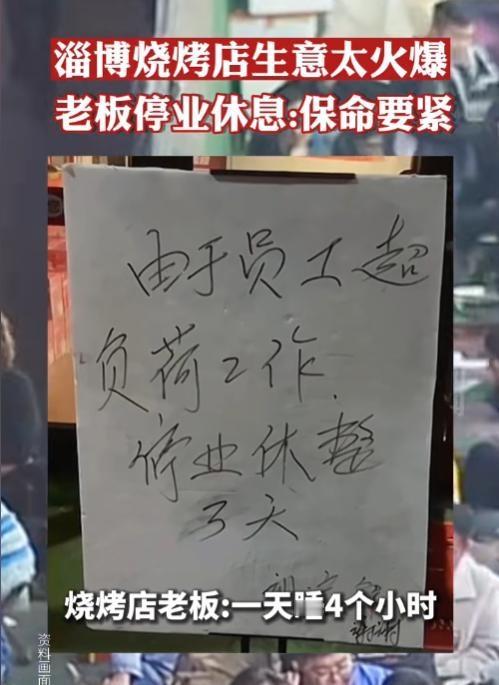 淄博烧烤店生意太火爆
老板停业休息:保命要紧
由于员工超
负荷工作.
停业休整
3天
烧烤店老板:一天睡4个小时
谢谢
资料画面